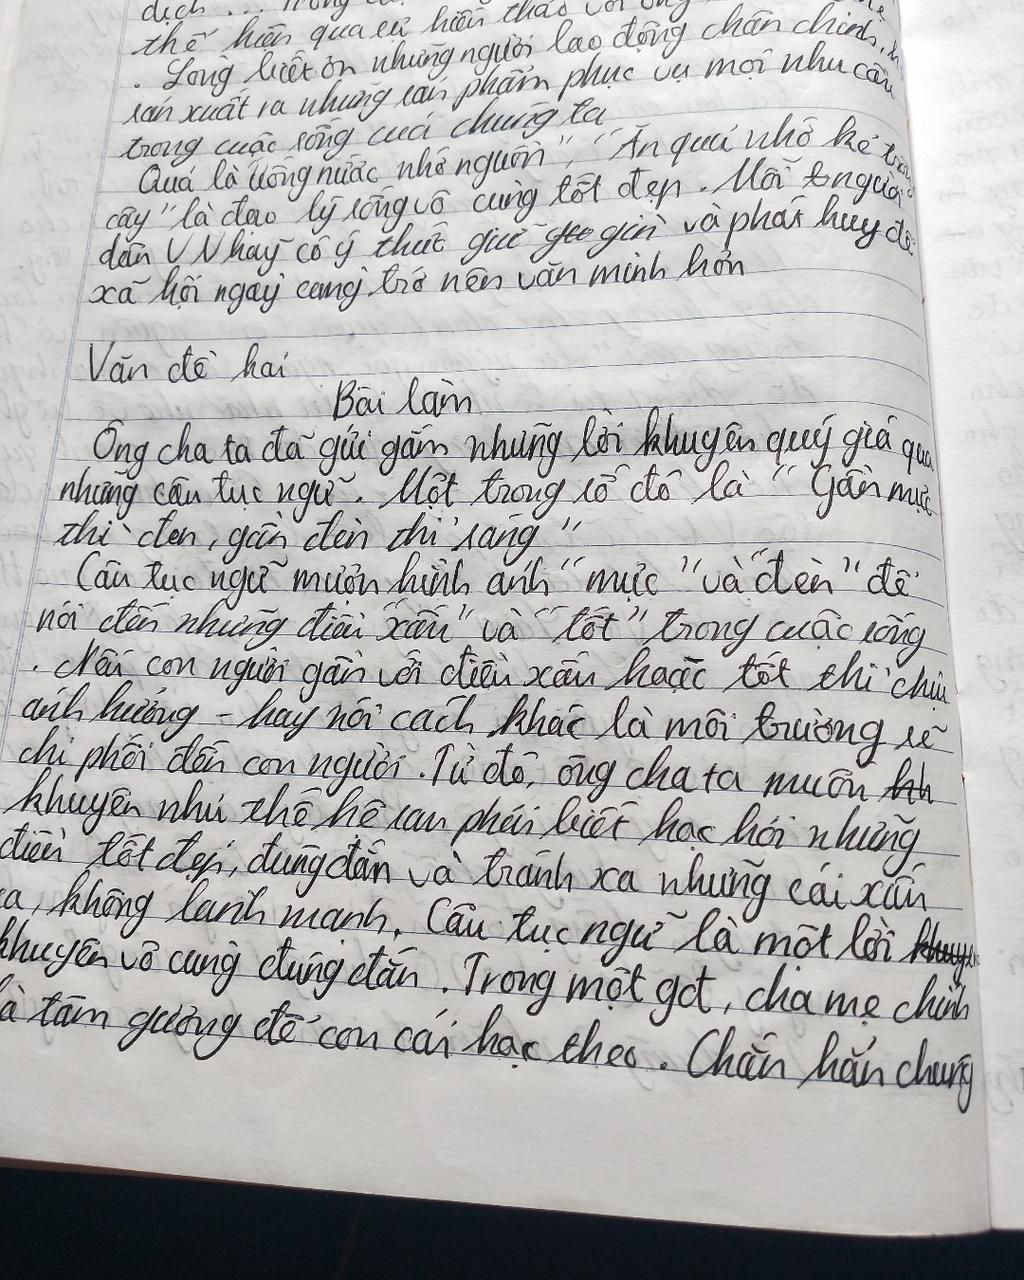 dịch ... Trong
thể hiện qua sự hiếu thảo với ông
. Lòng biết ơn những người lao động chân chính,
sản xuất ra những sản phẩm phục vụ mọi nhu cầu
trong cuộc sống của chúng ta
Quả là uống nước nhớ nguồn", "Ăn quả nhớ kẻ trồng
cây" là đạo lý sống vô cùng tốt đẹp. Mỗi người
dân VN hãy có ý thức giữ gìn và phát huy để
xã hội ngày càng trở nên văn minh hơn
Văn đề hai
Bài làm
Ông cha ta đã gửi gắm những lời khuyên quý giá qua
những câu tục ngữ. Một trong số đó là "Gần mực
thì đen, gần đèn thì sáng"
Câu tục ngữ mượn hình ảnh "mực" và "đèn" để
nói đến những điều "xấu" và "tốt" trong cuộc sống
. Nếu con người gần với điều xấu hoặc tốt thì chịu
ảnh hưởng - hay nói cách khác là môi trường sẽ
chi phối đến con người. Từ đó, ông cha ta muốn
khuyên như thế hệ sau phải biết học hỏi những
điều tốt đẹp, đúng đắn và tránh xa những cái xấu
xa, không lành mạnh. Câu tục ngữ là một lời
khuyên vô cùng đúng đắn. Trong một gđ, cha mẹ chính
là tấm gương để con cái học theo. Chắn hẳn chúng